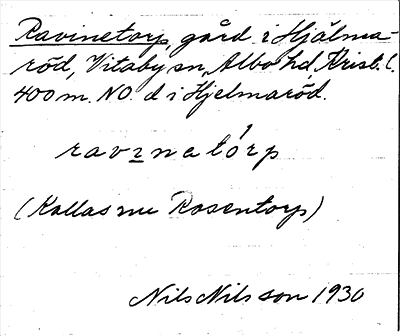 Ravinetorp, gård i Hjälma-
röd, Vitaby sn, Albo hd, Krist. l.
400 m. NO. d i Hjelmaröd.
ravinatórp
(Kallas nu Rosentorp)
Nils Nilsson 1930